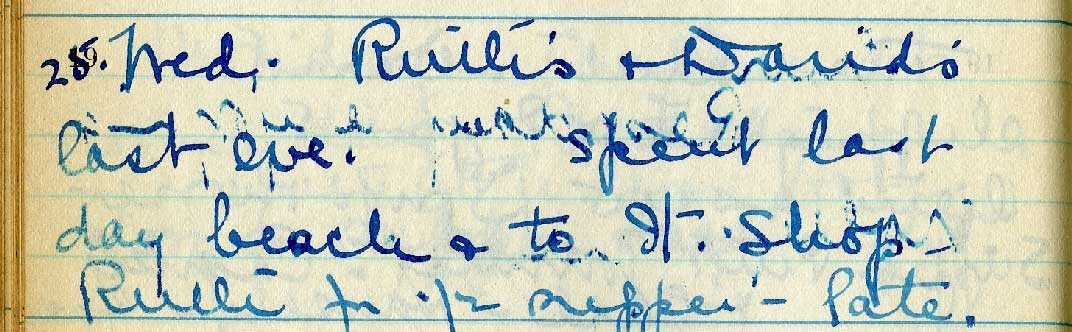 25. Wed. Ruth's + David's
last eve. spent last
day beach + to St. Shop -
Ruth for supper - late.